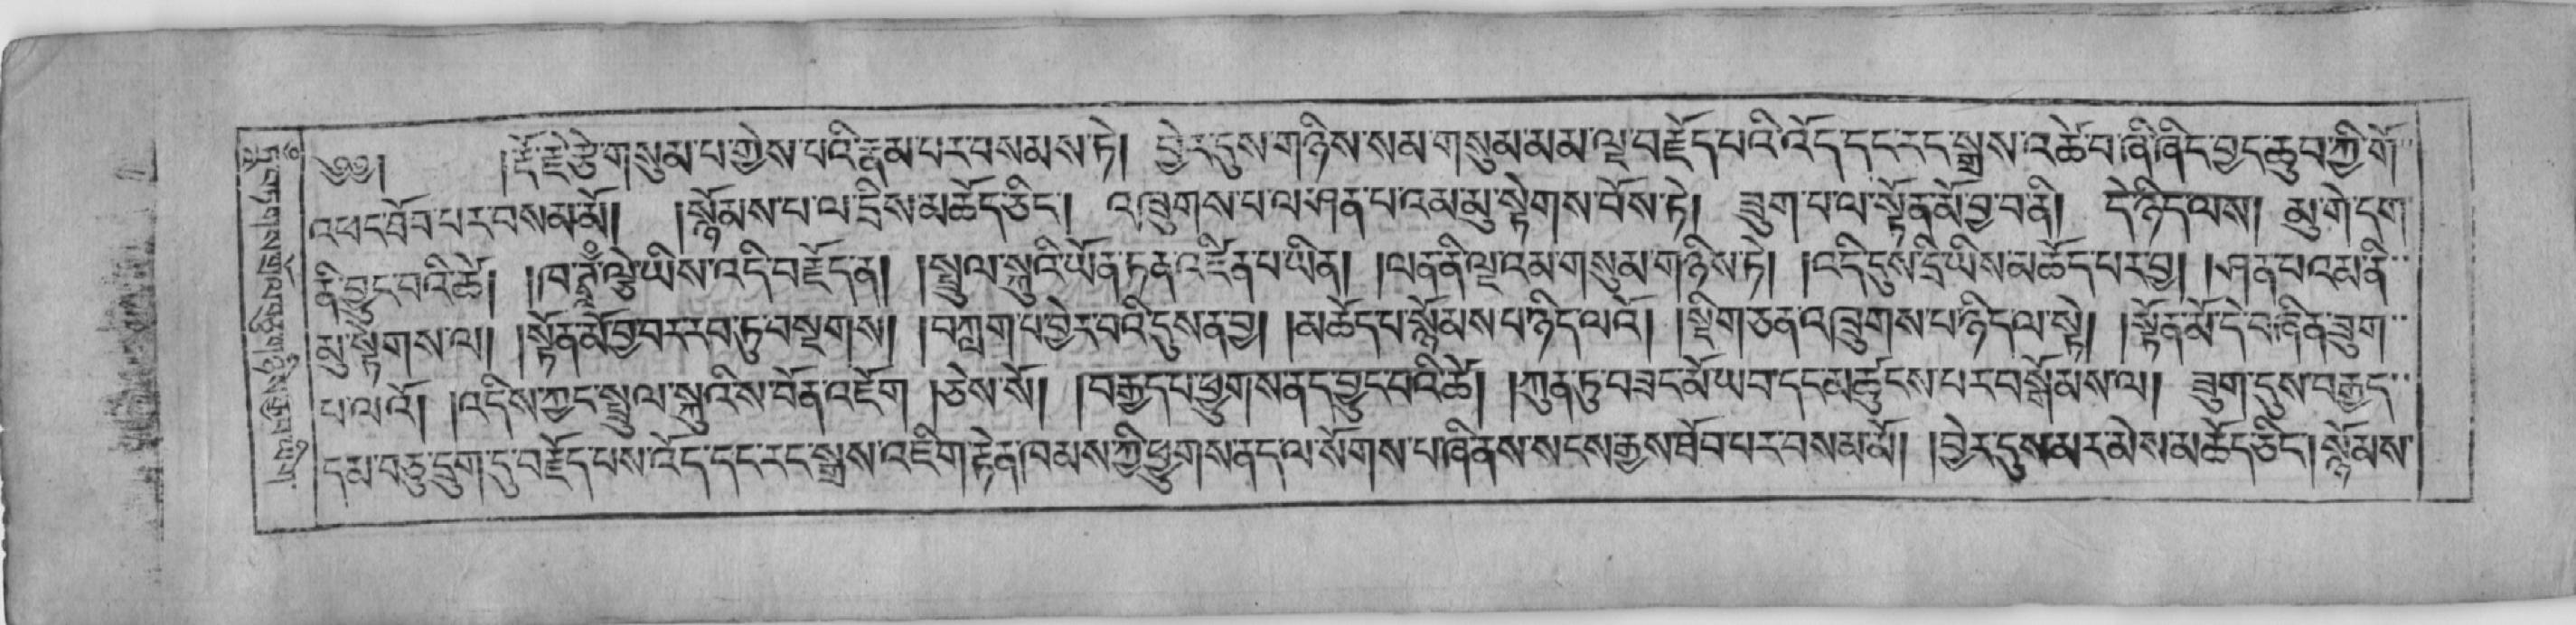 ༄༅། །རྡོ་རྗེ་རྩེ་གསུམ་པ་གྱེས་པའི་རྣམ་པར་བསམས་ཏེ། ཕྱེར་དུས་གཉིས་སམ་གསུམ་མམ་ལྔ་བརྗོད་པའི་འོད་དང་རང་སྒྲས་འཚེ་བ་ཞི་ཞིང་བྱང་ཆུབ་ཀྱི་གོ་
འཕང་ཐོབ་པར་བསམ་མོ། །སྙོམས་པ་ལ་དྲིས་མཆོད་ཅིང་། འཁྲུགས་པ་ལ་ཤན་པ་འམ་མུ་སྟེགས་བོས་ཏེ། ཟླུག་པ་ལ་སྟོན་མོ་བྱ་བནི། དེ་ཉིད་ལས། མུ་གེ་དག་
ནི་བྱུང་བའི་ཚེ། །ཁ་ཊྭཱཾ་ལྕེ་ཡིས་འདི་བརྗོད་ན། །སྤྲུལ་སྐུའི་ཡོན་ཏན་འདྲེན་པ་ཡིན། །ལན་ནི་ལྔ་འམ་གསུམ་གཉིས་ཏེ། །འདི་དུས་དྲི་ཡིས་མཆོད་པར་བྱ། །ཤན་པ་འམ་ནི་
མུ་སྟེགས་ལ། །སྟོན་མོ་བྱ་བར་རབ་ཏུ་བསྔགས། །བཀླག་པ་ཕྱེར་བའི་དུས་ན་བྱ། །མཆོད་པ་སྙོམས་པ་ཉིད་ལའོ། །སྡིག་ཅན་འཁྲུགས་པ་ཉིད་ལ་སྟེ། །སྟོན་མོ་དེ་བཞིན་ཟླུག་
པ་ལའོ། །འདིས་ཀྱང་སྤྲུལ་སྐུའི་ས་བོན་འཇོག །ཅེས་སོ། །བརྒྱད་པ་ཕྱུགས་ནད་བྱུང་བའི་ཚེ། །ཀུན་ཏུ་བཟང་མོ་ཡབ་དང་མཚུངས་པར་བསྒོམས་ལ། ཟླུག་དུས་བརྒྱད་
དམ་བཅུ་དྲུག་ཏུ་བརྗོད་པས་འོད་དང་རང་སྒྲས་འཇིག་རྟེན་ཁམས་ཀྱི་ཕྱུགས་ནད་ལ་སོགས་པ་ཞི་ནས་སངས་རྒྱས་ཐོབ་པར་བསམ་མོ། །ཕྱེར་དུས་མར་མེས་མཆོད་ཅིང་། སྙོམས་